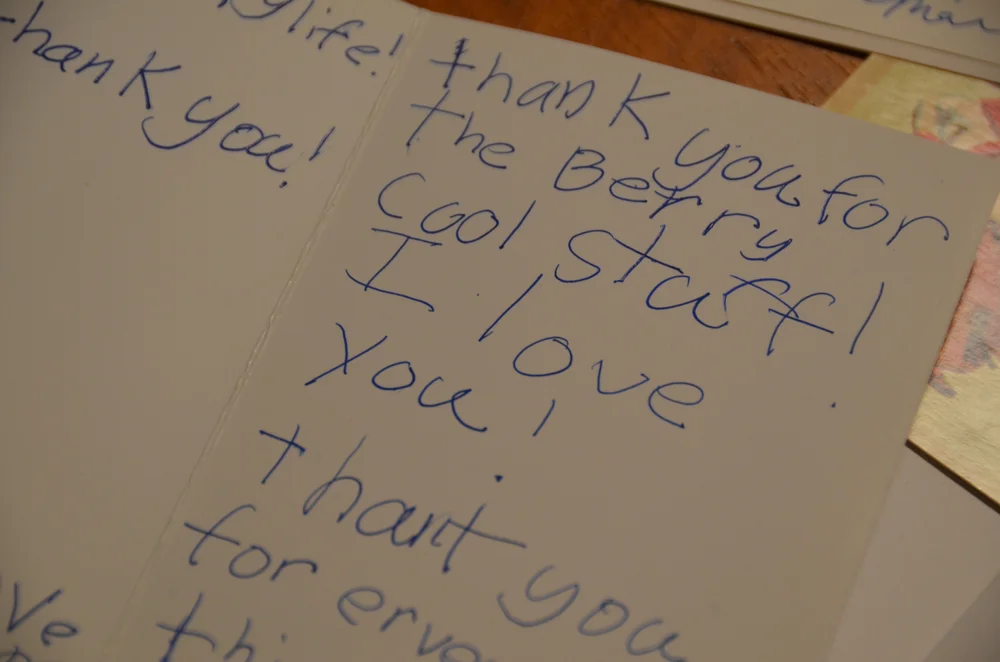 life!
thank you!
thank you for
the Berry
Cool stuff!
I love
you!
thant you
for